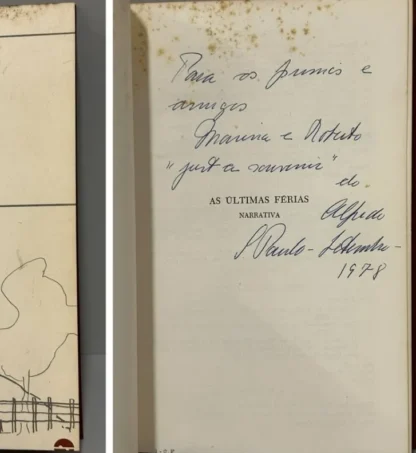 Para os primos e
amigos
Marina e Roberto
"just a souvenir"
do
AS ÚLTIMAS FÉRIAS
NARRATIVA
Alfredo
S Paulo - Setembro -
1978